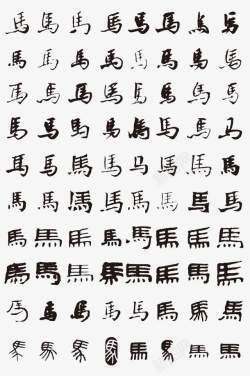 馬馬馬馬馬馬馬馬
馬馬馬馬馬馬馬馬
馬馬馬馬馬馬馬馬
馬馬馬馬馬馬馬馬
馬馬馬馬馬馬馬馬
馬馬馬馬馬馬馬馬
馬馬馬馬馬馬馬馬
馬馬馬馬馬馬馬馬
馬馬馬馬馬馬馬馬
馬馬馬馬馬馬馬馬